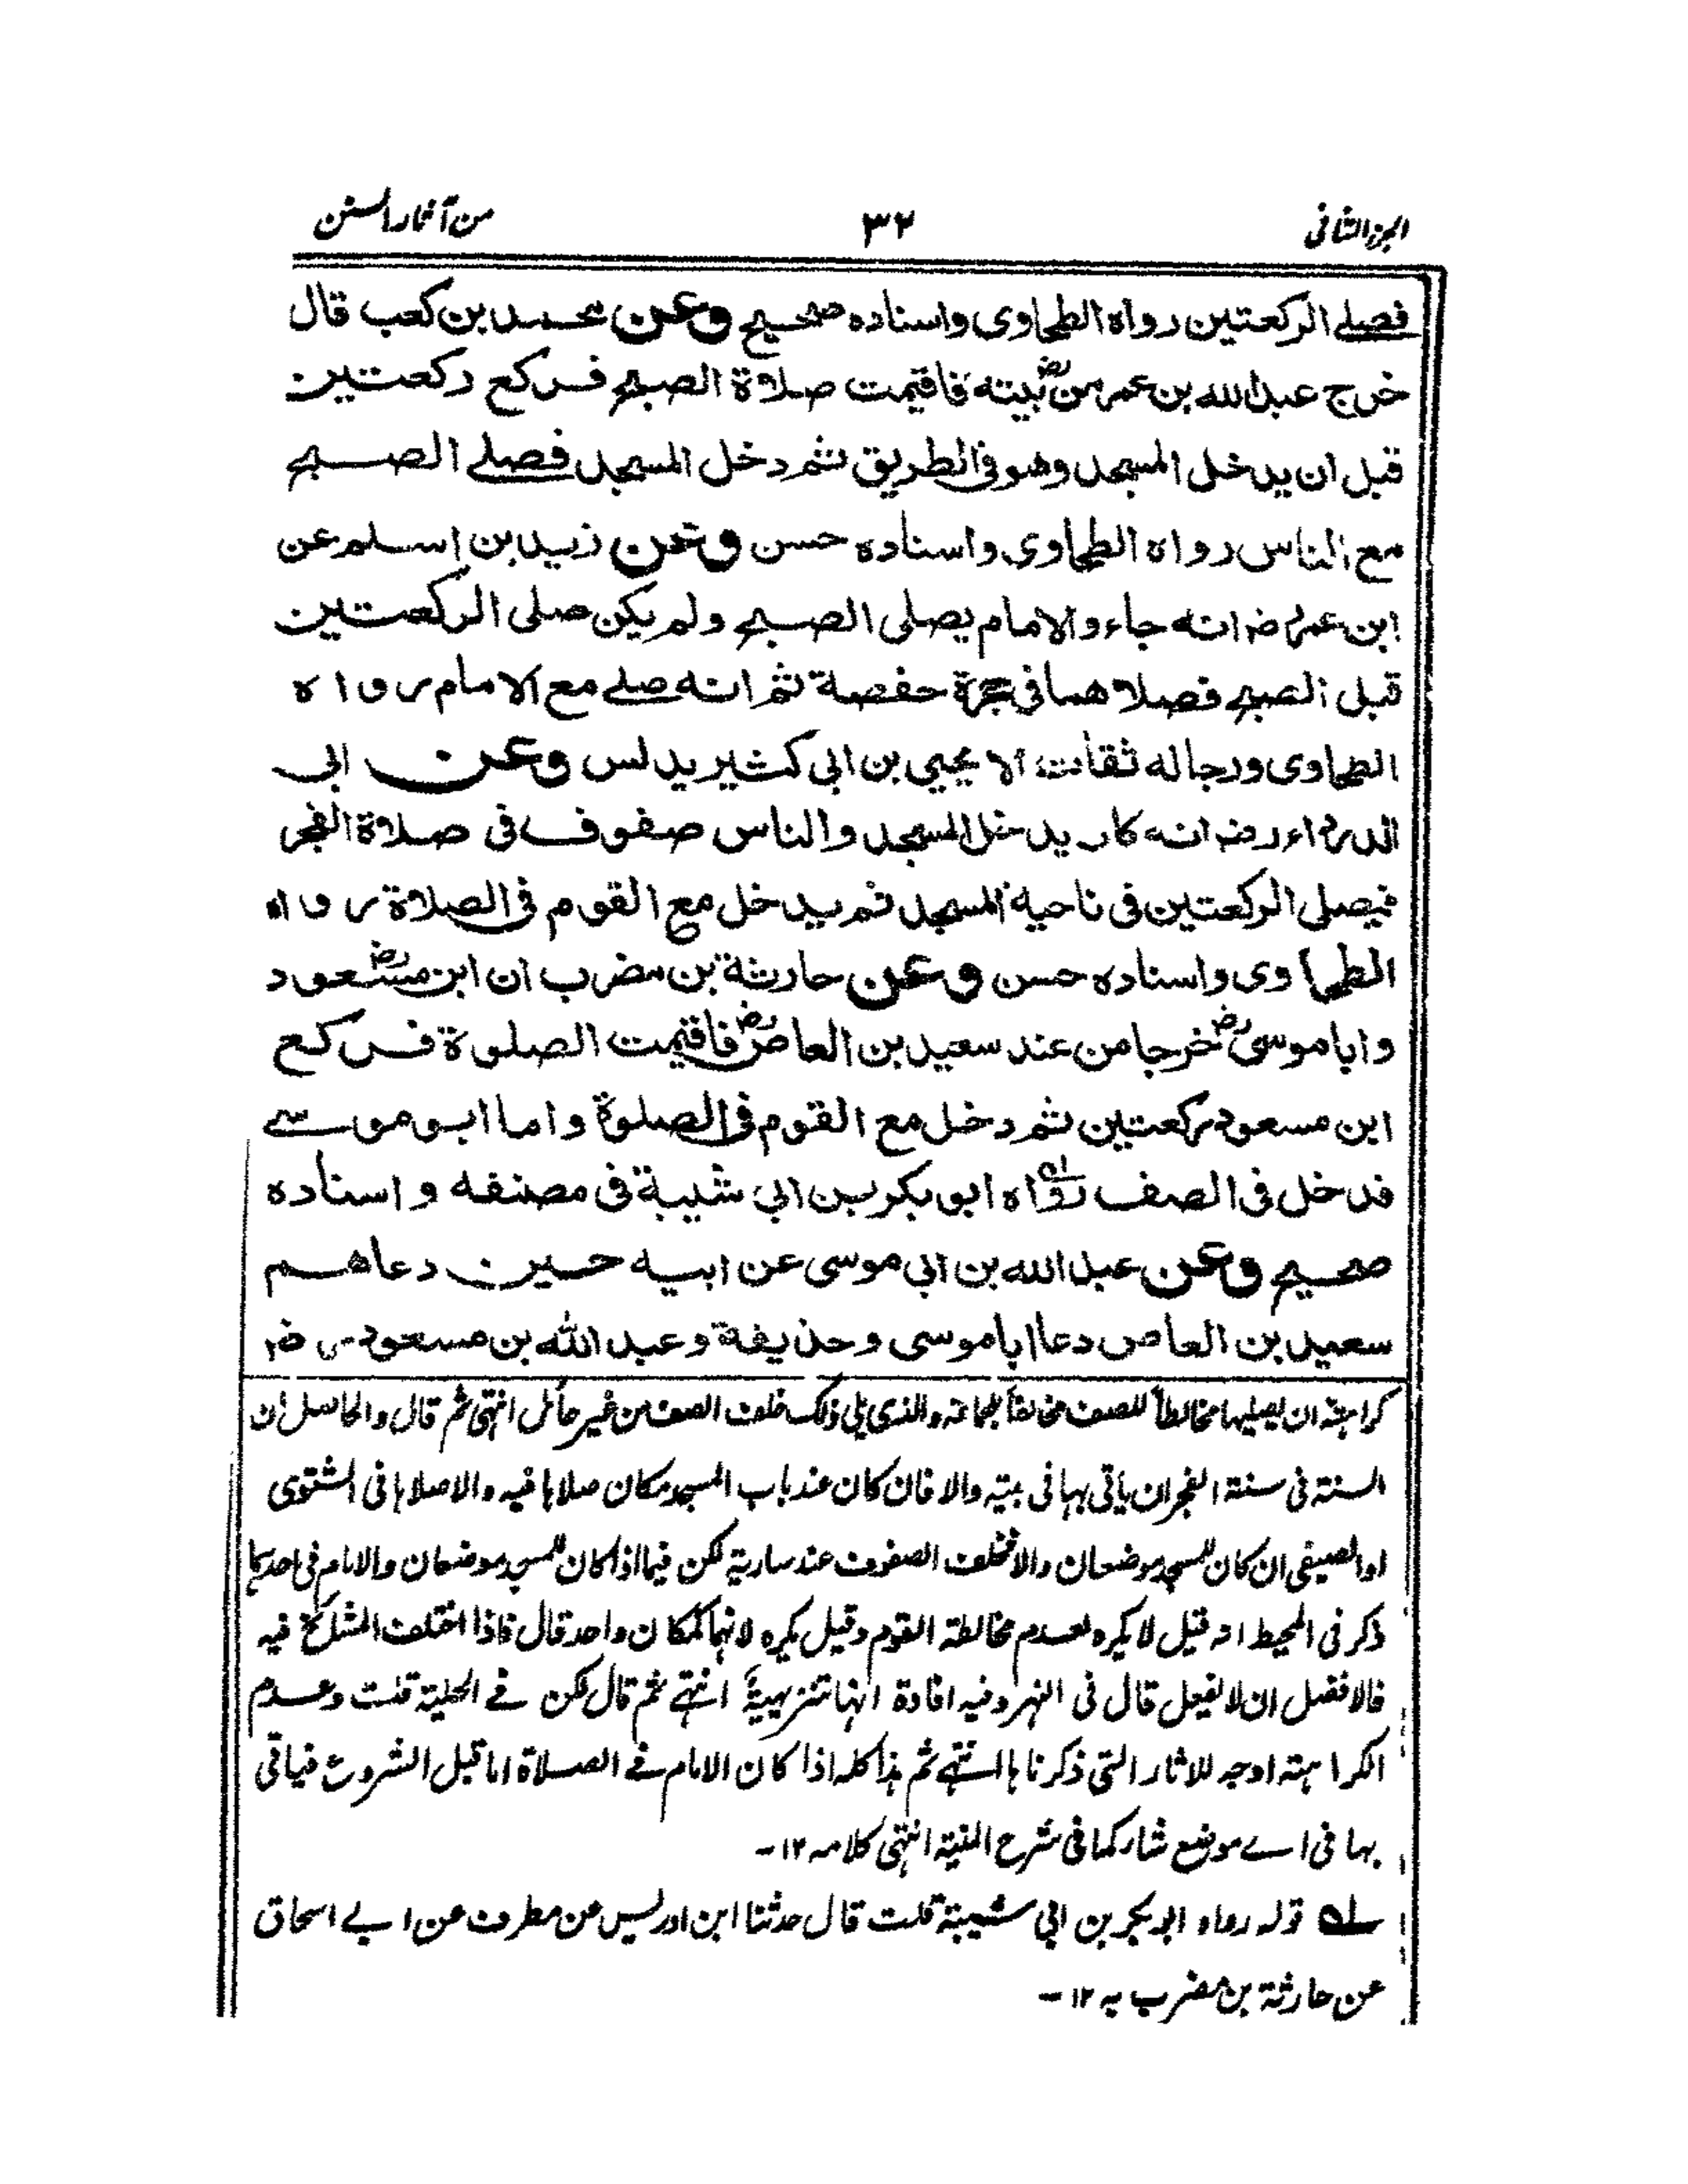 الجزء الثاني ٣٢ من آثار السنن
فصلى الركعتين رواه الطحاوى واسناده صحيح وعن محمد بن كعب قال
خرج عبد الله بن عمر رض من بيته فاقيمت صلاة الصبح فركع ركعتين
قبل ان يدخل المسجد وهو فى الطريق ثم دخل المسجد فصلے الصبح
مع الناس رواه الطحاوى واسناده حسن وعن زيد بن اسلم عن
ابن عمر رض انه جاء والامام يصلى الصبح ولم يكن صلى الركعتين
قبل الصبح فصلاهما فى حجرة حفصة ثم انه صلے مع الامام رواه
الطحاوى ورجاله ثقات الا يحيى بن ابى كثير يدلس وعن ابى
الدرداء رض انه كان يدخل المسجد والناس صفوف فى صلاة الفجر
فيصلى الركعتين فى ناحية المسجد ثم يدخل مع القوم فى الصلاة رواه
الطحاوى واسناده حسن وعن حارثة بن مضرب ان ابن مسعود رض
وابا موسى رض خرجا من عند سعيد بن العاص رض فاقيمت الصلوة فركع
ابن مسعود ركعتين ثم دخل مع القوم فى الصلوة واما ابو موسے
فدخل فى الصف رواه ابو بكر بن ابي شيبة فى مصنفه واسناده
صحيح وعن عبد الله بن ابى موسى عن ابيه حين دعاهم
سعيد بن العاص دعا ابا موسى وحذيفة وعبد الله بن مسعود رض
كراهته ان يصليها مخالطاً للصف مخالفاً للجماعة والذى يلى ذلك خلف الصف من غير حائل انتهى ثم قال والحاصل ان
السنة فى سنة الفجر ان يأتى بها فى بيته والا فان كان عند باب المسجد مكان صلاها فيه والا صلاها فى الشتوى
او الصيفى ان كان للمسجد موضعان والا فخلف الصفوف عند سارية لكن فيما اذا كان للمسجد موضعان والامام فى احدهما
ذكر فى المحيط انه قيل لا يكره لعدم مخالطة القوم وقيل يكره لانهما كمكان واحد قال فاذا اختلف المشائخ فيه
فالافضل ان لا يفعل قال فى النهر وفيه افادة انها تنزيهية انتهے ثم قال لكن فے الحلية قلت وعدم
الكراهة اوجه للاثار التى ذكرناها انتهے ثم هذا كله اذا كان الامام فے الصلاة اما قبل الشروع فياتى
بها فى اے موضع شار كما فى شرح المنية انتهى كلامه ١٢-
له قوله رواه ابو بكر بن ابي شيبة قلت قال حدثنا ابن ادريس عن مطرف عن ابے اسحاق
عن حارثة بن مضرب به ١٢-